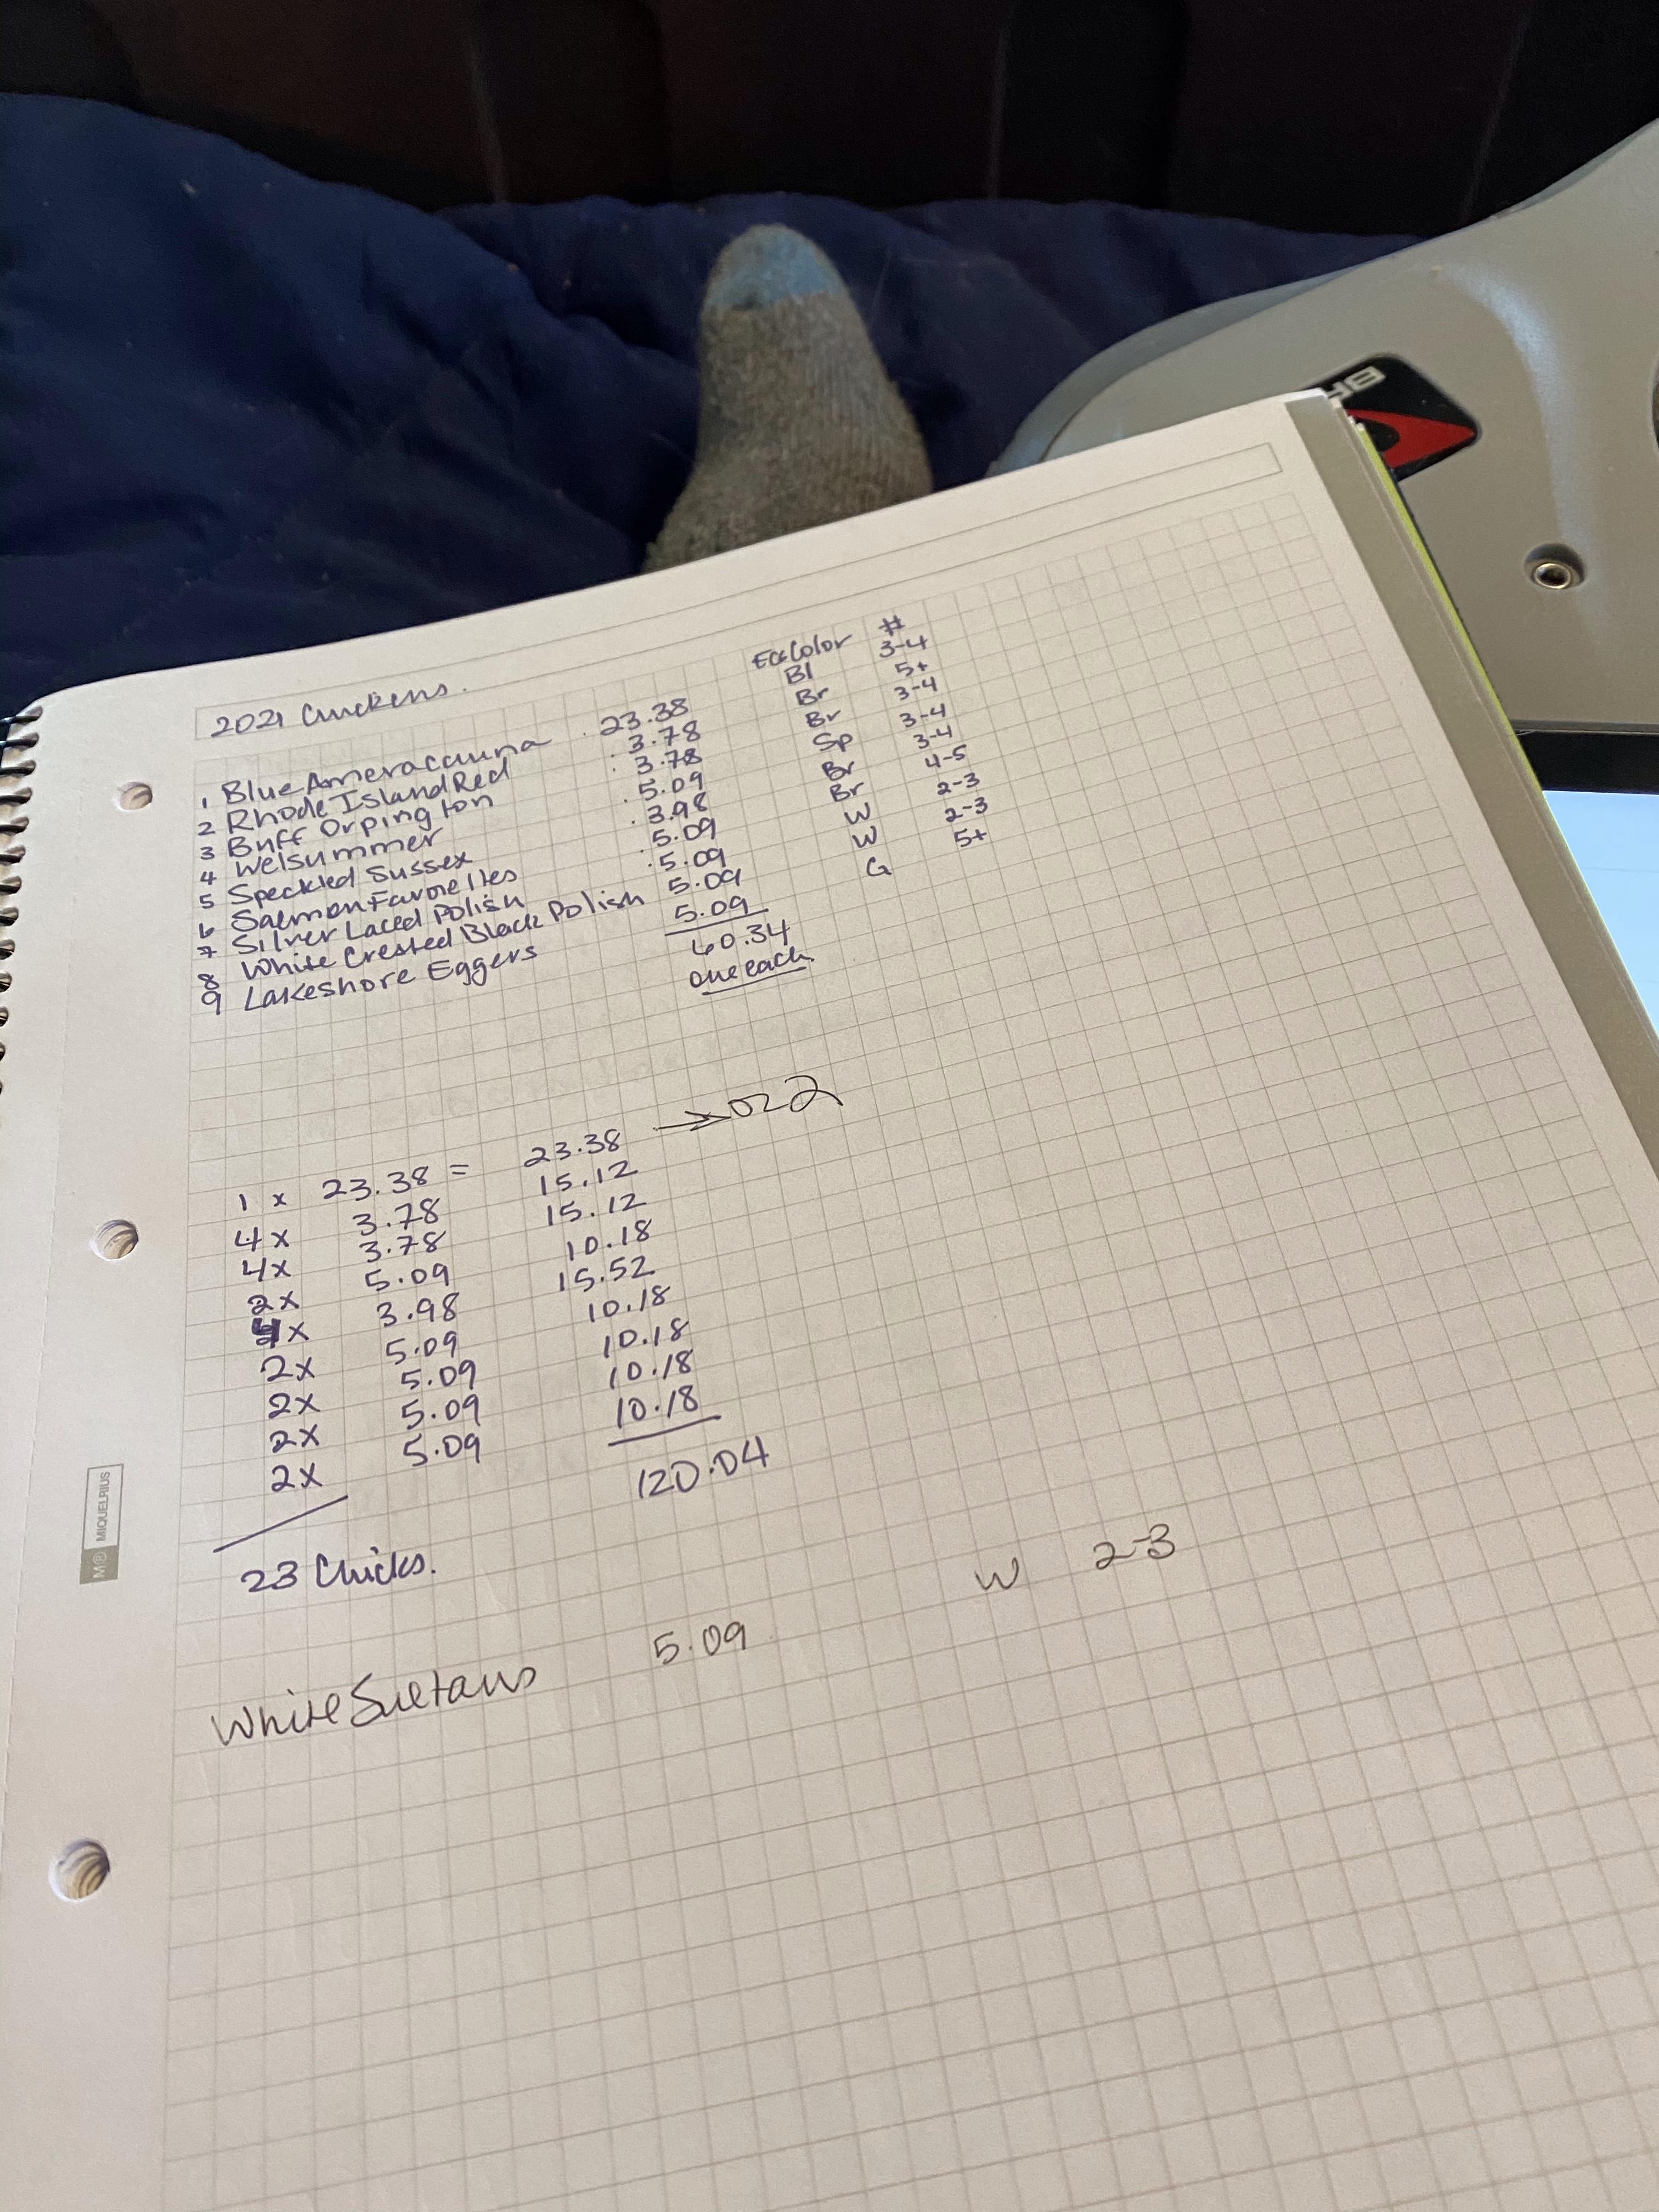 2021 Chickens.
EGG Color #
1 Blue Ameracauna 23.38 Bl 3-4
2 Rhode Island Red 3.78 Br 5+
3 Buff Orpington 3.78 Br 3-4
4 Welsummer 5.09 Sp 3-4
5 Speckled Sussex 3.98 Br 3-4
6 Salmon Favorelles 5.09 Br 4-5
7 Silver Laced Polish 5.09 W 2-3
8 White Crested Black Polish 5.09 W 2-3
9 Lakeshore Eggers 5.09 G 5+
60.34
one each
1 x 23.38 = 23.38 → or 2
4x 3.78 15.12
4x 3.78 15.12
2x 5.09 10.18
4x 3.98 15.52
2x 5.09 10.18
2x 5.09 10.18
2x 5.09 10.18
2x 5.09 10.18
120.04
23 Chicks.
White Sultans 5.09 W 2-3
MR MIQUELRIUS